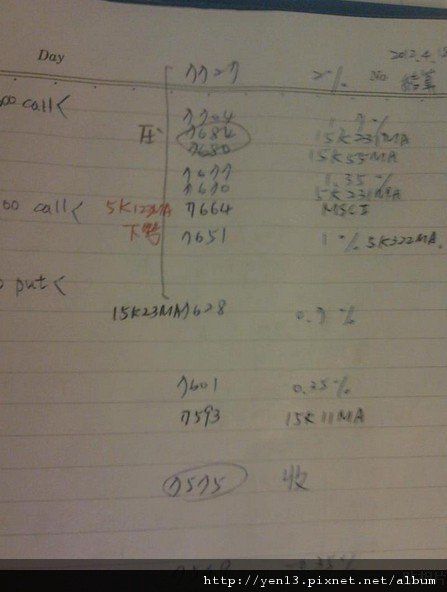 Day
2012.4.18
No. 結算
7727 2%
00 call<
7704 1.7%
壓 7684 15K231MA
7680 15K55MA
7677 1.35%
7670 5K231MA
00 call< 5K123MA 7664 MSCI
下彎 7651 1% 5K322MA
put<
15K23MA 7628 0.7%
7601 0.35%
7593 15K11MA
7575 收
http://yen13.pixnet.net/album